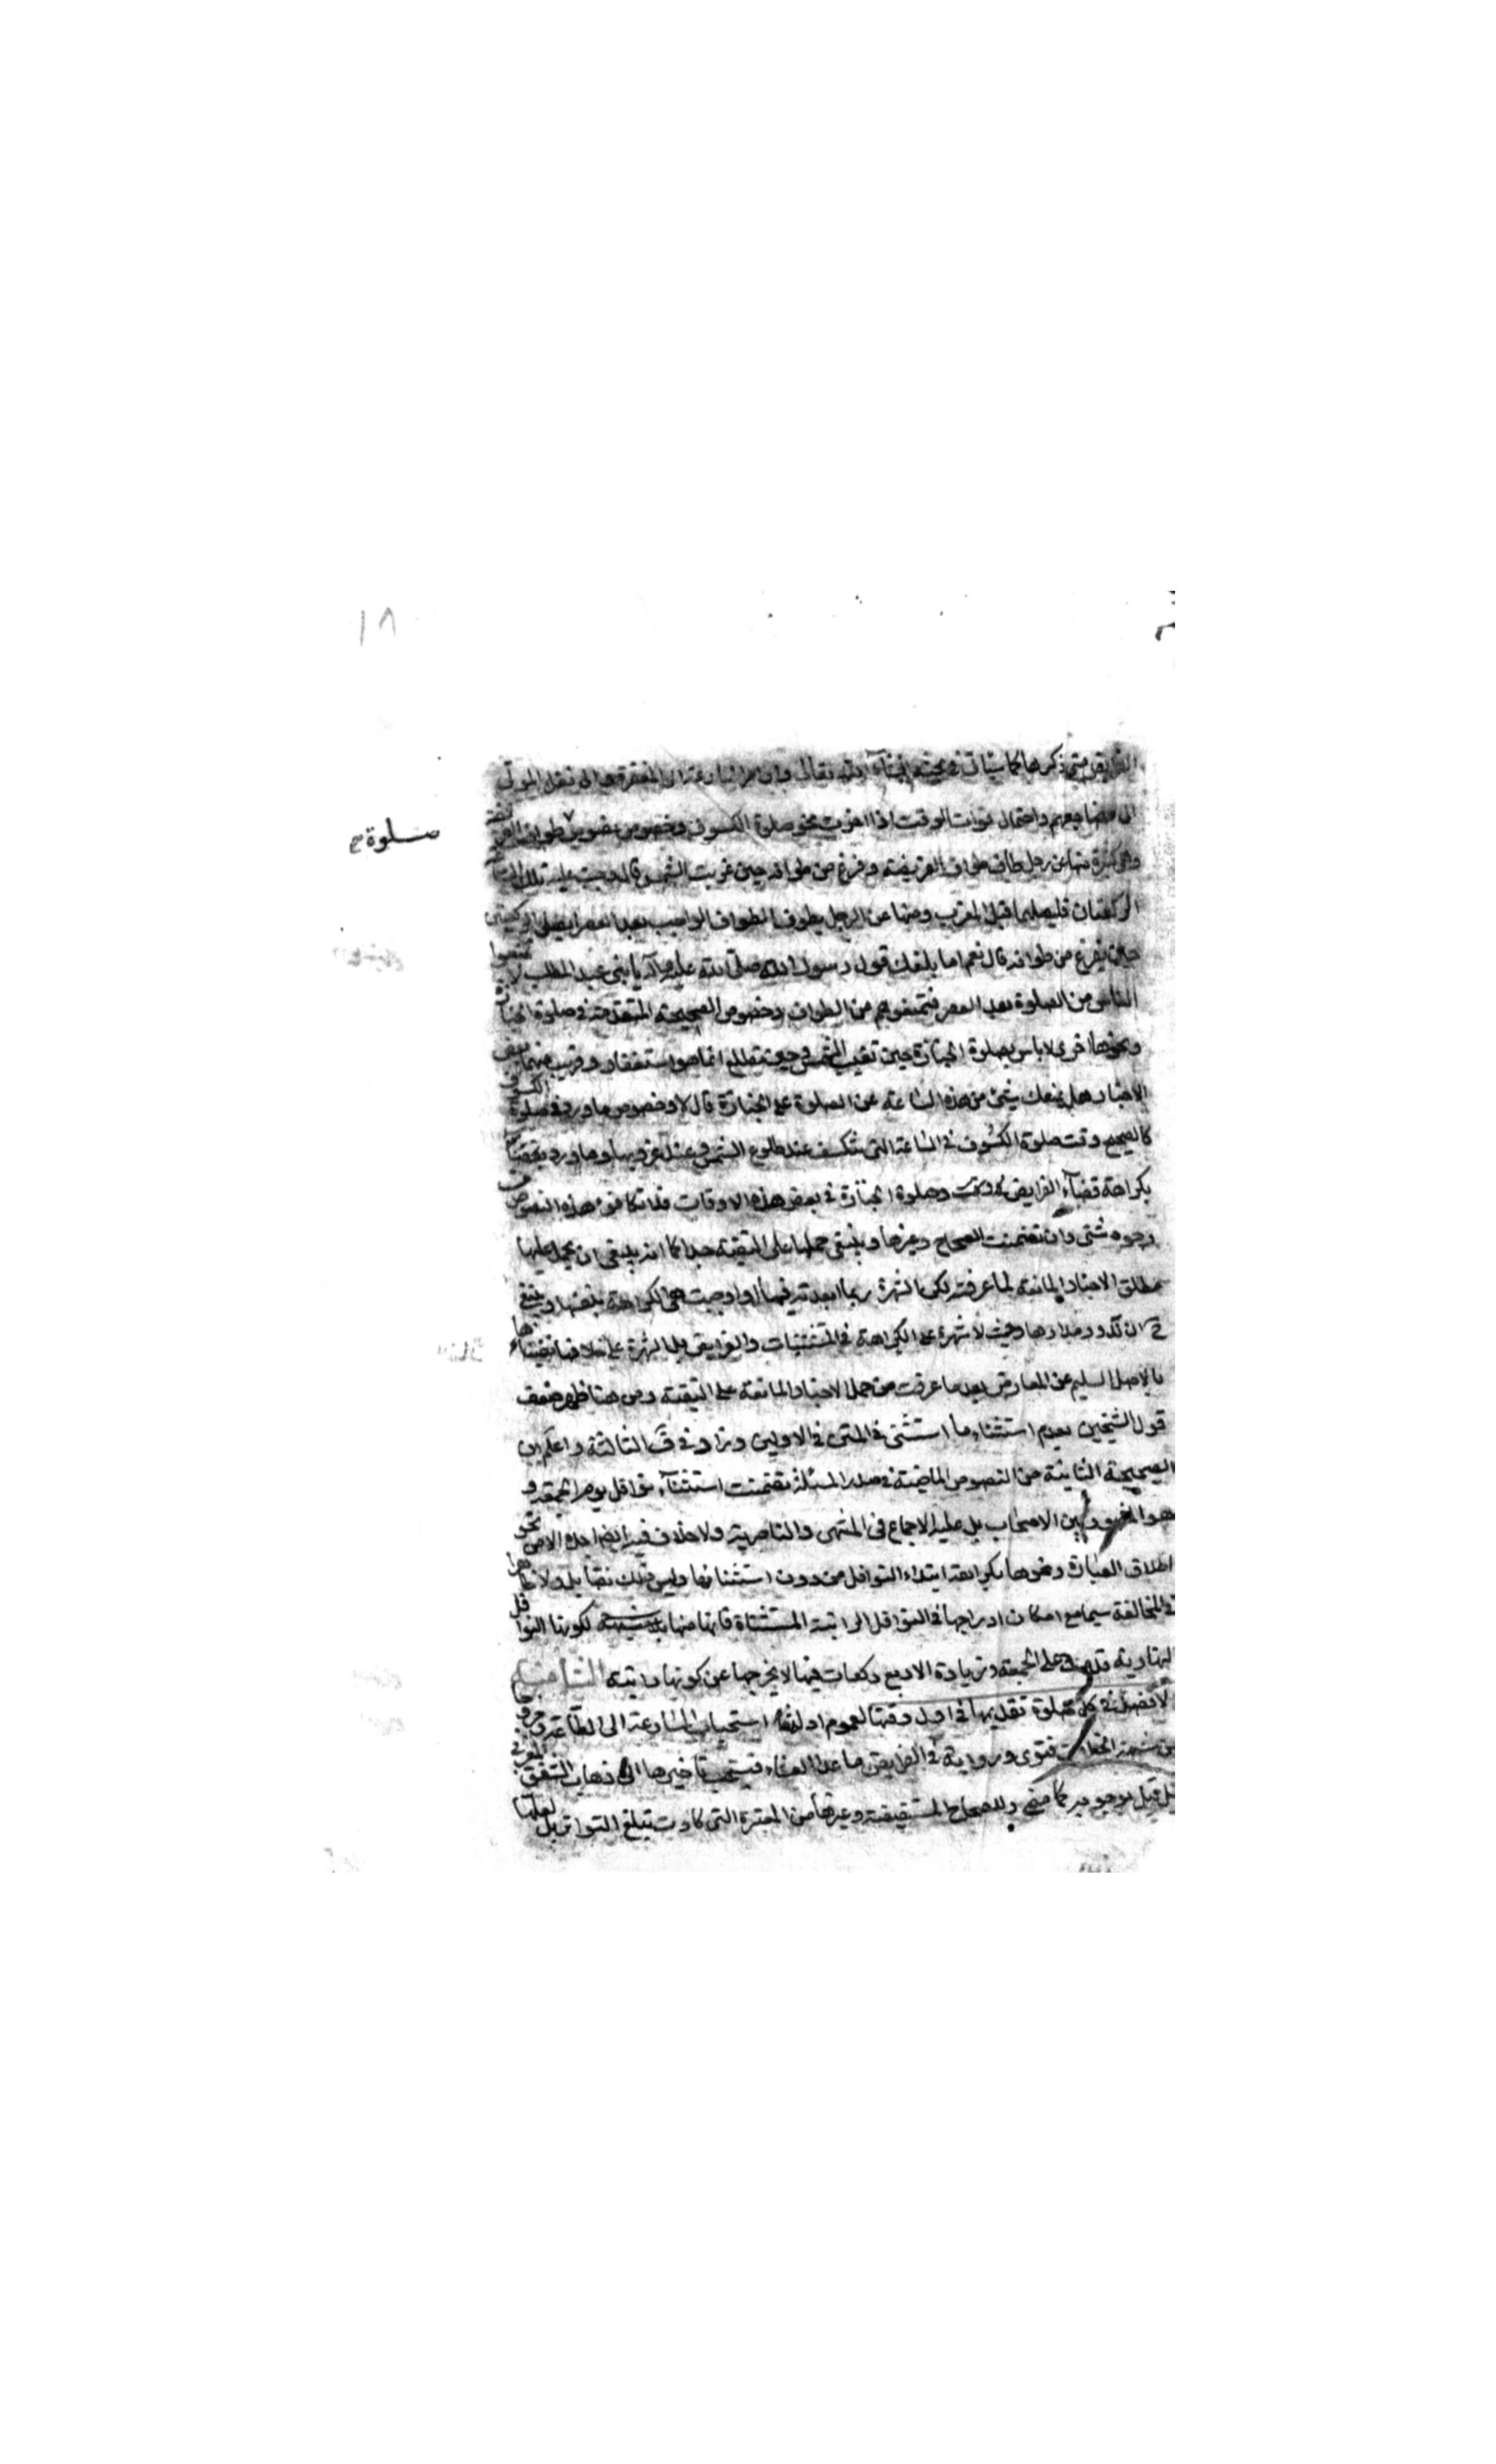 ١٨
الفرايض متى ذكرها كما سياتي في بحثه انشاء الله تعالى وان مر المسارعة الى المغفرة والى نقل الموتى
الى مضاجعهم واحتمال فوات الوقت اذا اخرت نحو صلوة الكسوف وخصوص نصوص طواف الفريضة
صلوة
وهي كثيرة منها عن رجل طاف طواف الفريضة وفرغ من طوافه حين غربت الشمس قال وجبت عليه تلك الساعة
الركعتان فليصلهما قبل المغرب ومنها عن الرجل يطوف الطواف الواجب بعد العصر ايصلي الركعتين
حين يفرغ من طوافه قال نعم اما بلغك قول رسول الله صلى الله عليه وآله يا بني عبد المطلب لا تمنعوا
الناس من الصلوة بعد العصر فتمنعوهم من الطواف وخصوص الصحيحة المتقدمة في صلوة الجنازة
ونحوها اخرى لا باس بصلوة الجنازة حين تغيب الشمس وحين تطلع انما هو استغفار وقريب منهما بعض
الاخبار هل يمنعك شيئ من هذه الساعة عن الصلوة على الجنازة قال لا وخصوص ما ورد في صلوة الكسوف
كالصحيح وقت صلوة الكسوف في الساعة التي تنكسف عند طلوع الشمس وعند غروبها وما ورد
بكراهة قضاء الفرايض وصلوة الجنازة في بعض هذه الاوقات فلا تكافؤ هذه النصوص من
وجوه شتى وان تضمنت الصحاح وغيرها وينبغي حملها على التقية جدا كما انه ينبغي ان يحمل عليها
مطلق الاخبار المانعة لما عرفته لكن الشهرة ربما ابعدته فيها واوجبت الكراهة بنفسها وينبغي
ح ان تدور مدارها وحيث لا شهرة على الكراهة في المستثنيات والفرايض بل الشهرة على خلافها نفيناها
بالاصل السليم عن المعارض بعد ما عرفت من حمل الاخبار المانعة على التقية ومن هنا ظهر ضعف
قول الشيخين بعدم استثناء ما استثنى في المتن في الاولين وزاد في ف الثالثة واعلم ان
الصحيحة الثانية من النصوص الماضية في صدر المسئلة تضمنت استثناء نوافل يوم الجمعة و
هو المشهور بين الاصحاب بل عليه الاجماع في المنتهى والناصرية ولا خلاف فيه ايضا اجده الا من نحو
اطلاق العبارة ونحوها بكراهة ابتداء النوافل من دون استثنائها وليس ذلك نصا بل ولا ظاهرا
في المخالفة سيما مع امكان ادراجها في النوافل الراتبة المستثناة فانها منها لكونها النوافل
النهارية قدمت على الجمعة وزيادة الاربع ركعات فيها لا يخرجها عن كونها راتبة الثامنة
الافضل في كل صلوة تقديمها في اول وقتها لعموم ادلة استحباب المسارعة الى الطاعة وخروجها
من شبهة الخلاف فتوى ورواية في الفرايض ما عدا العشاء فيستحب تاخيرها الى ذهاب الشفق المغربي
بل قيل بوجوبه كما مضى وللصحاح المستفيضة وغيرها من المعتبرة التي كادت تبلغ التواتر بل لعلها